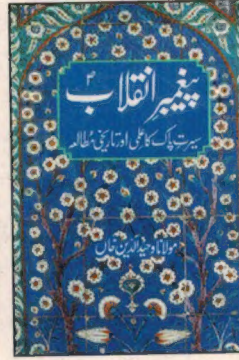 پیغمبرِ انقلابؐ
سیرتِ پاک کا علمی اور تاریخی مُطالعہ
مولانا وحید الدین خاں